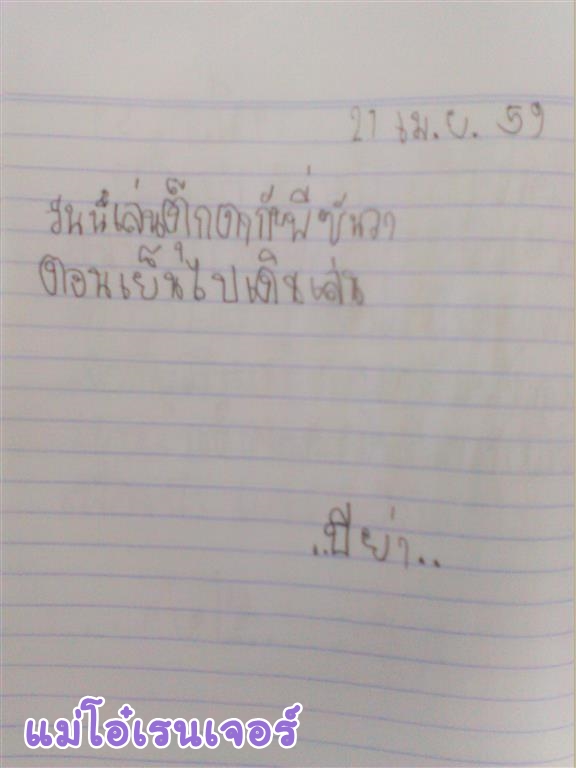 21 เม.ย. 59
วันนี้เล่นตุ๊กตากับพี่ซันวา
ตอนเย็นไปเดินเล่น
..ปีย่า..
แม่โอ๋เรนเจอร์